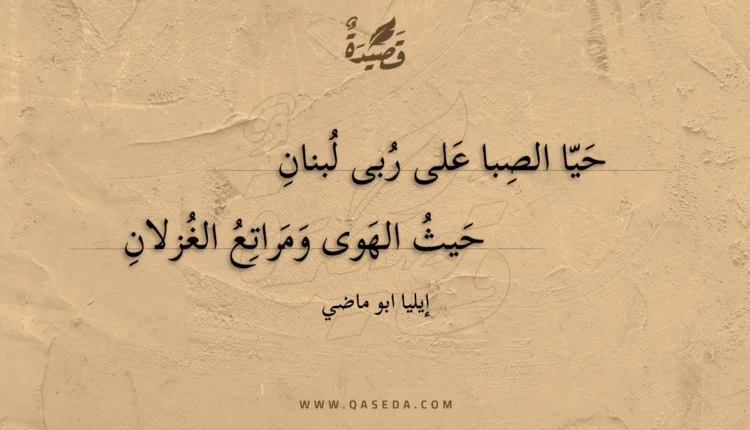 قَصِيْدَةٌ
حَيّا الصِبا عَلى رُبى لُبنانِ
حَيثُ الهَوى وَمَراتِعُ الغُزلانِ
إيليا ابو ماضي
WWW.QASEDA.COM